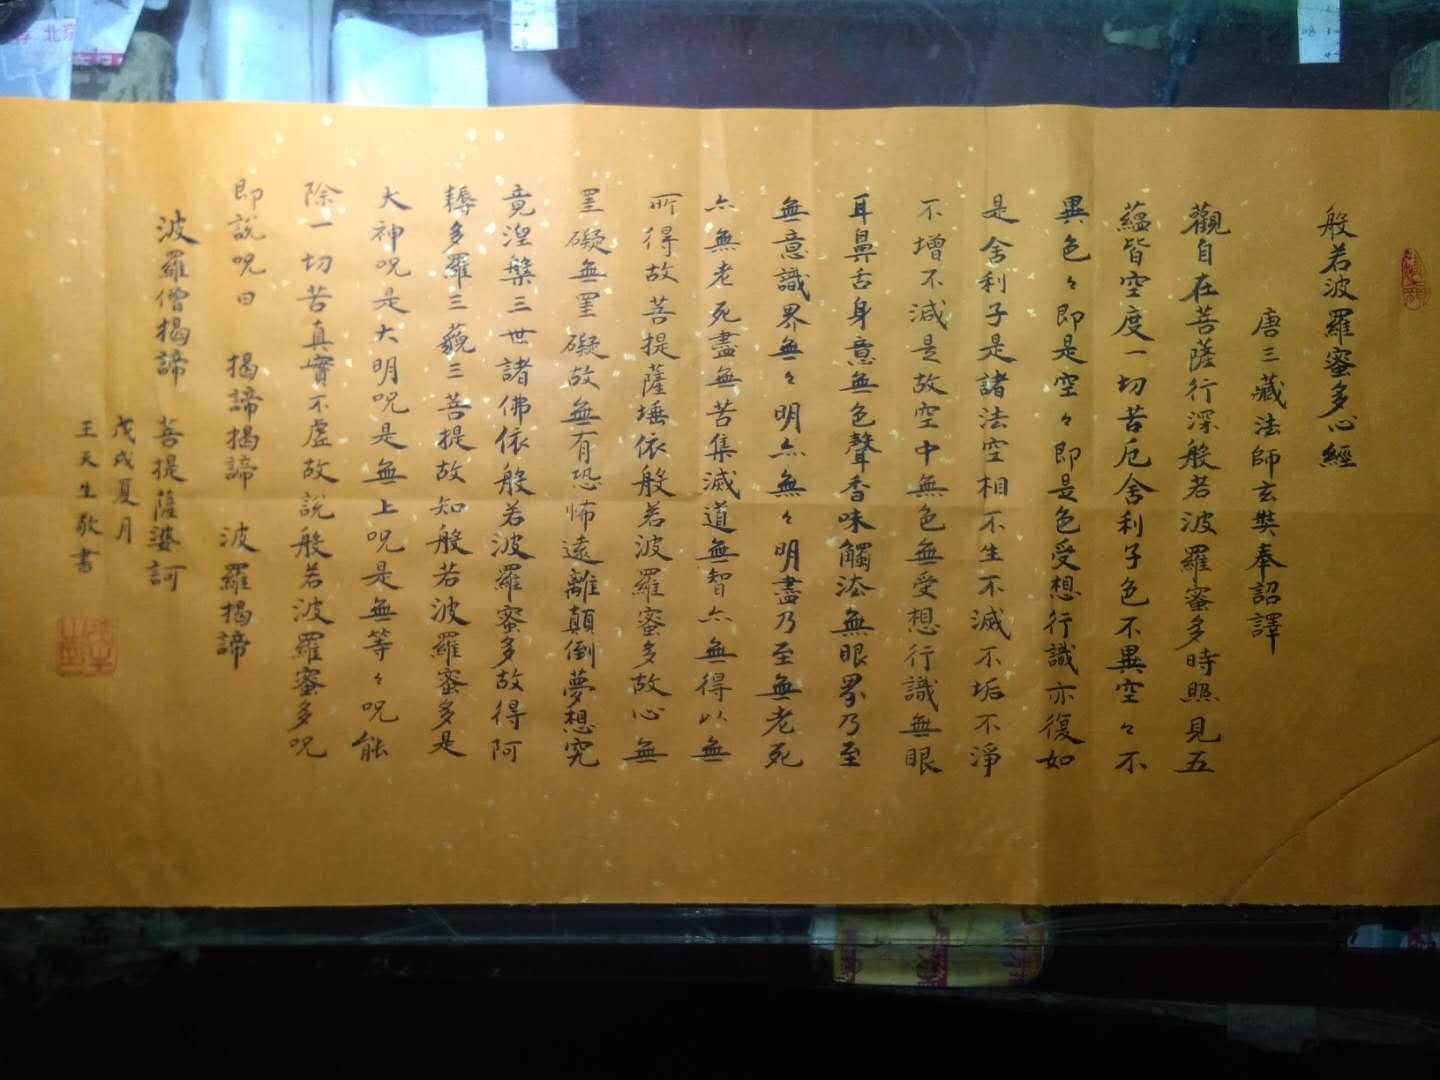 般若波羅蜜多心經
唐三藏法師玄奘奉詔譯
觀自在菩薩行深般若波羅蜜多時照見五
蘊皆空度一切苦厄舍利子色不異空々不
異色々即是空々即是色受想行識亦復如
是舍利子是諸法空相不生不滅不垢不淨
不增不減是故空中無色無受想行識無眼
耳鼻舌身意無色聲香味觸法無眼界乃至
無意識界無々明亦無々明盡乃至無老死
亦無老死盡無苦集滅道無智亦無得以無
所得故菩提薩埵依般若波羅蜜多故心無
罣礙無罣礙故無有恐怖遠離顛倒夢想究
竟涅槃三世諸佛依般若波羅蜜多故得阿
耨多羅三藐三菩提故知般若波羅蜜多是
大神呪是大明呪是無上呪是無等々呪能
除一切苦真實不虛故說般若波羅蜜多呪
即說呪曰 揭諦揭諦 波羅揭諦
波羅僧揭諦 菩提薩婆訶
戊戌夏月
王天生敬書
北京